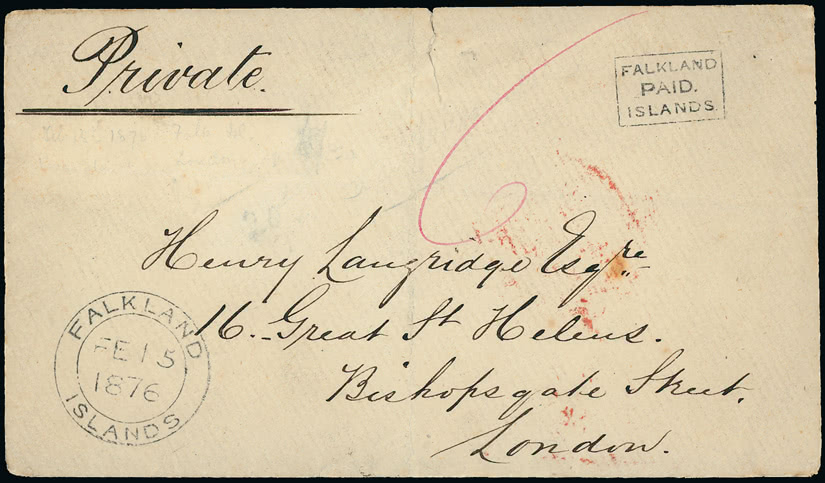 Private.
FALKLAND
PAID.
ISLANDS.
6
Henry Langridge Esqre
16. Great St Helens.
Bishopsgate Street.
London.
FALKLAND
FE 15
1876
ISLANDS